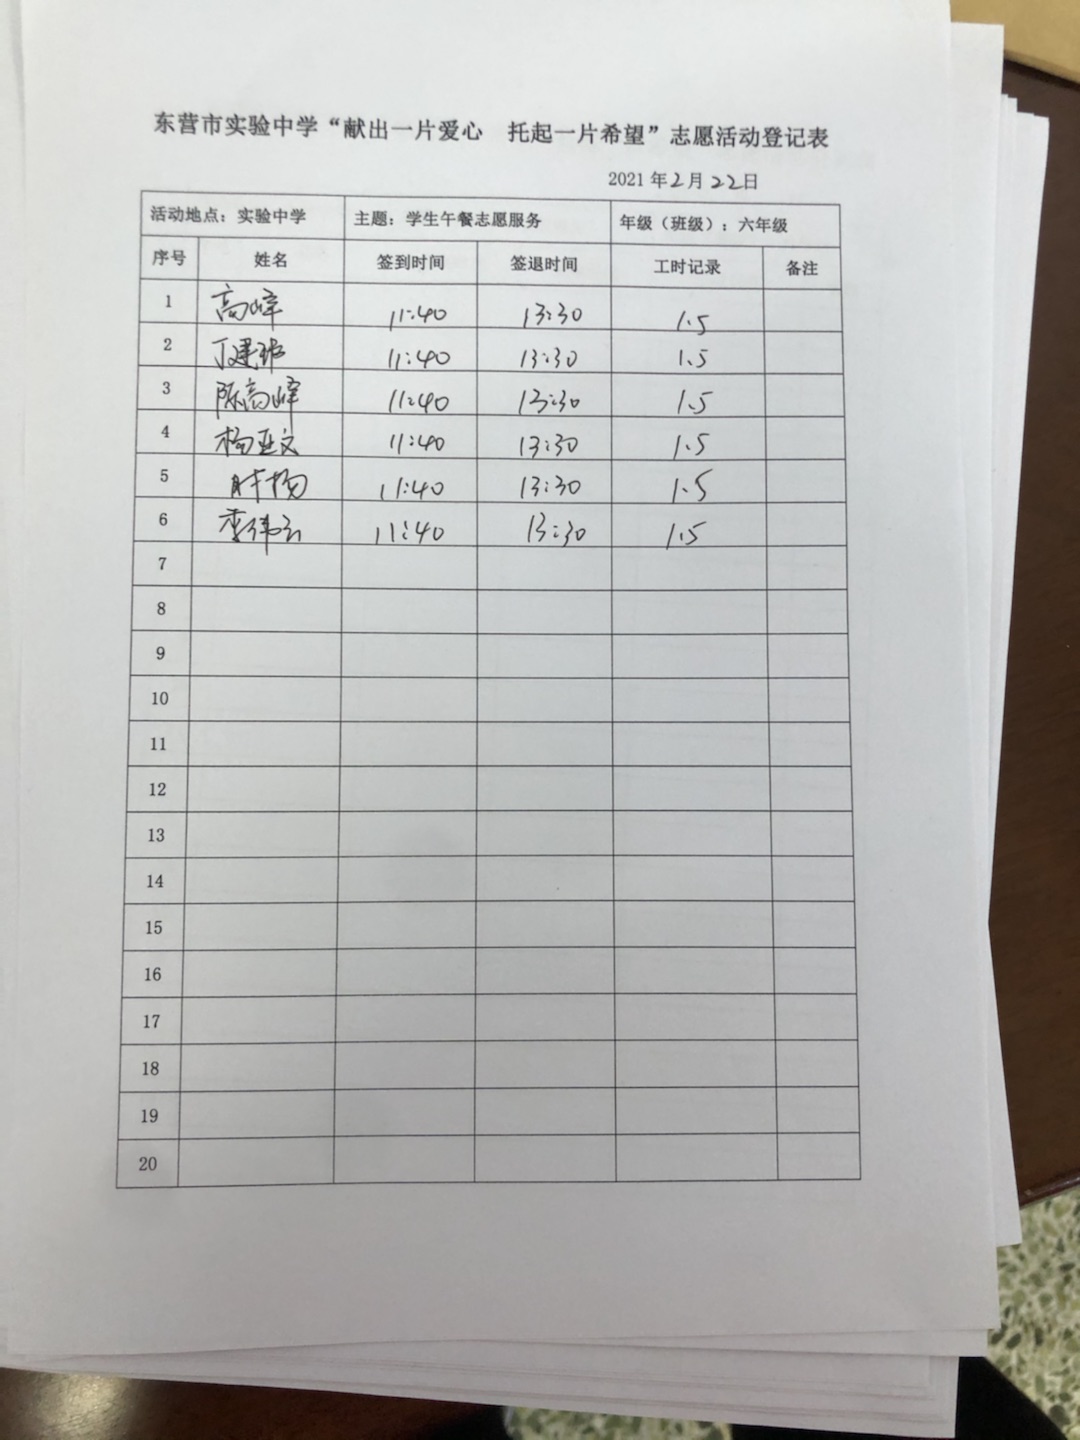 东营市实验中学“献出一片爱心 托起一片希望”志愿活动登记表
2021 年2月22日
活动地点：实验中学 主题：学生午餐志愿服务 年级（班级）：六年级
序号 姓名 签到时间 签退时间 工时记录 备注
1 高峰 11:40 13:30 1.5
2 丁建 11:40 13:30 1.5
3 陈高峰 11:40 13:30 1.5
4 杨亚文 11:40 13:30 1.5
5 11:40 13:30 1.5
6 李伟 11:40 13:30 1.5
7
8
9
10
11
12
13
14
15
16
17
18
19
20